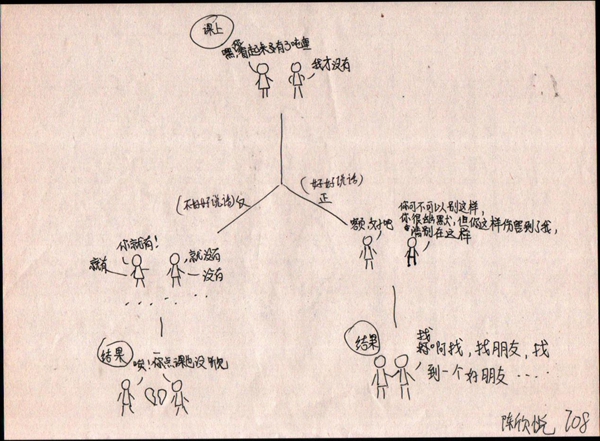 课上
看起来多有了吨重
我才没有
(不好好说话)反
(好好说话)
正
你就有!
就有
就没有
没有
......
额,好吧
你可不可以别这样,
你很幽默,但你这样伤害到了我,
请别在这样
结果
唉!
课也没听
结果
找
啊找,找朋友,找
到一个好朋友.....
陈欣悦 708